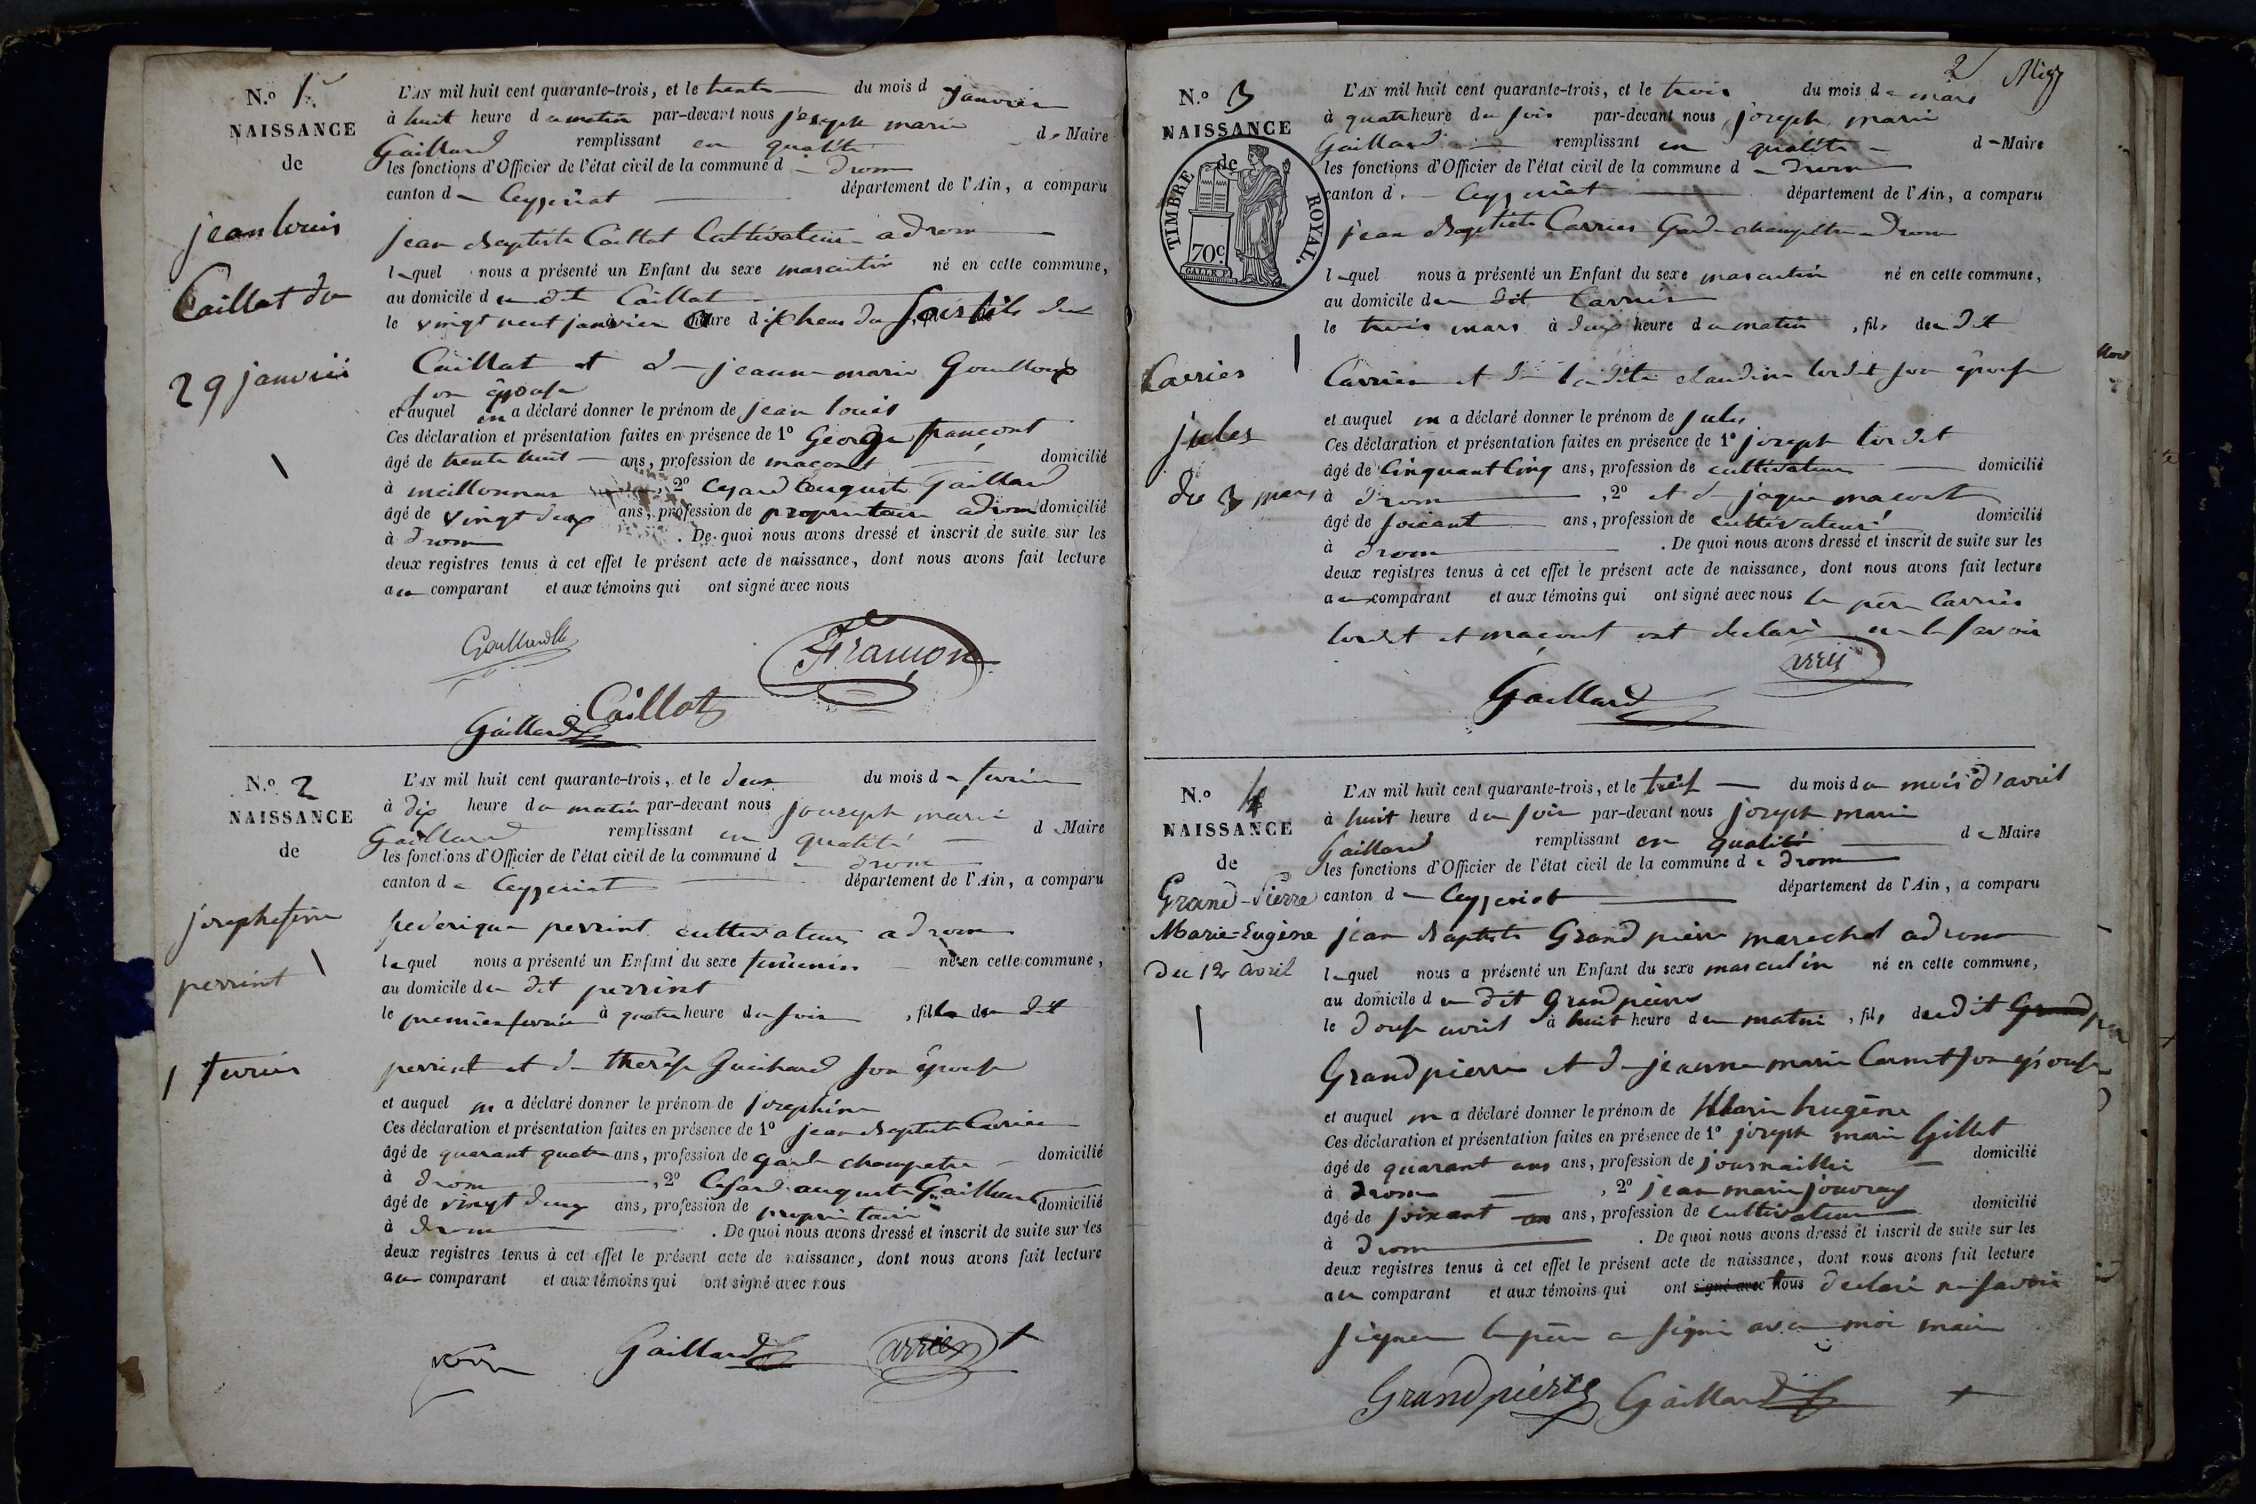 N.º 1er
NAISSANCE
de
jean louis
Caillat du
29 janvier
L'AN mil huit cent quarante-trois, et le trente du mois d janvier
à huit heure du matin par-devant nous joseph marie
Gaillard remplissant en qualité de Maire
les fonctions d'Officier de l'état civil de la commune d drom
canton de Ceyzeriat département de l'Ain, a comparu
jean Baptiste Caillat Cultivateur a drom
lequel nous a présenté un Enfant du sexe masculin né en cette commune,
au domicile du dit Caillat
le vingt neuf janvier heure dix heur du soir fils du
Caillat et de jeanne marie Goulloux
son épouse
et auquel on a déclaré donner le prénom de jean louis
Ces déclaration et présentation faites en présence de 1º George françont
âgé de trente huit ans, profession de maçont domicilié
à meillonnas 2º Cesard auguste Gaillard
âgé de vingt deux ans, profession de proprietaire a drom domicilié
à drom . De quoi nous avons dressé et inscrit de suite sur les
deux registres tenus à cet effet le présent acte de naissance, dont nous avons fait lecture
au comparant et aux témoins qui ont signé avec nous
Françon
Caillat
Gaillard
N.º 2
NAISSANCE
de
josephefine
perrint
1 fevrier
L'AN mil huit cent quarante-trois, et le deux du mois de fevrier
à dix heure du matin par-devant nous jouseph marie
Gaillard remplissant en qualité d Maire
les fonctions d'Officier de l'état civil de la commune d drom
canton de Ceyzeriat département de l'Ain, a comparu
federique perrint cultivateur a drom
lequel nous a présenté un Enfant du sexe feminin né en cette commune,
au domicile du dit perrint
le premier fevrier à quatre heure du soir , fille du dit
perrint et de therese Guichard son épouse
et auquel on a déclaré donner le prénom de josephine
Ces déclaration et présentation faites en présence de 1º jean Baptiste Carrier
âgé de quarant quatre ans, profession de garde champetre domicilié
à drom , 2º Cesard auguste Gaillard
âgé de vingt deux ans, profession de proprietaire domicilié
à drom . De quoi nous avons dressé et inscrit de suite sur les
deux registres tenus à cet effet le présent acte de naissance, dont nous avons fait lecture
au comparant et aux témoins qui ont signé avec nous
Gaillard
2
N.º 3
NAISSANCE
de
TIMBRE ROYAL.
70c.
Carrier
jules
du 3 mars
L'AN mil huit cent quarante-trois, et le trois du mois de mars
à quatre heure du soir par-devant nous joseph marie
Gaillard remplissant en qualité de Maire
les fonctions d'Officier de l'état civil de la commune d drom
canton d Ceyzeriat département de l'Ain, a comparu
jean Baptiste Carrier Garde champetre a Drom
lequel nous a présenté un Enfant du sexe masculin né en cette commune,
au domicile du dit Carrier
le trois mars à deux heure du matin , fils du dit
Carrier et de ladite claudine tordet son épouse
et auquel on a déclaré donner le prénom de jules
Ces déclaration et présentation faites en présence de 1º joseph tordet
âgé de Cinquant Cinq ans, profession de cultivateur domicilié
à drom , 2º et de jaque maçont
âgé de soicant ans, profession de cultivateur domicilié
à drom . De quoi nous avons dressé et inscrit de suite sur les
deux registres tenus à cet effet le présent acte de naissance, dont nous avons fait lecture
au comparant et aux témoins qui ont signé avec nous le père Carrier
tordet et maçont ont declaré ne le savoir
Gaillard
N.º 4
NAISSANCE
de
Grand-Pierre
Marie-Eugène
du 12 avril
L'AN mil huit cent quarante-trois, et le treis du mois du mois d'avril
à huit heure du soir par-devant nous joseph marie
Gaillard remplissant en qualité de Maire
les fonctions d'Officier de l'état civil de la commune de drom
canton de Ceyzeriat département de l'Ain, a comparu
jean Baptiste Grand pierre marechal a drom
lequel nous a présenté un Enfant du sexe masculin né en cette commune,
au domicile du dit Grand pierre
le douse avril à huit heure du matin , fils du dit Grand pier
Grand pierre et de jeanne marie Carnet son epouse
et auquel on a déclaré donner le prénom de Marie hugène
Ces déclaration et présentation faites en présence de 1º joseph marie Gillet
âgé de quarant ans ans, profession de journaillier domicilié
à drom , 2º jean marie jouvray
âgé de soixant an ans, profession de Cultivateur domicilié
à drom . De quoi nous avons dressé et inscrit de suite sur les
deux registres tenus à cet effet le présent acte de naissance, dont nous avons fait lecture
au comparant et aux témoins qui ont signé avec nous declaré ne savoir
signer le père a signé avec moi maire
Grandpierre Gaillard